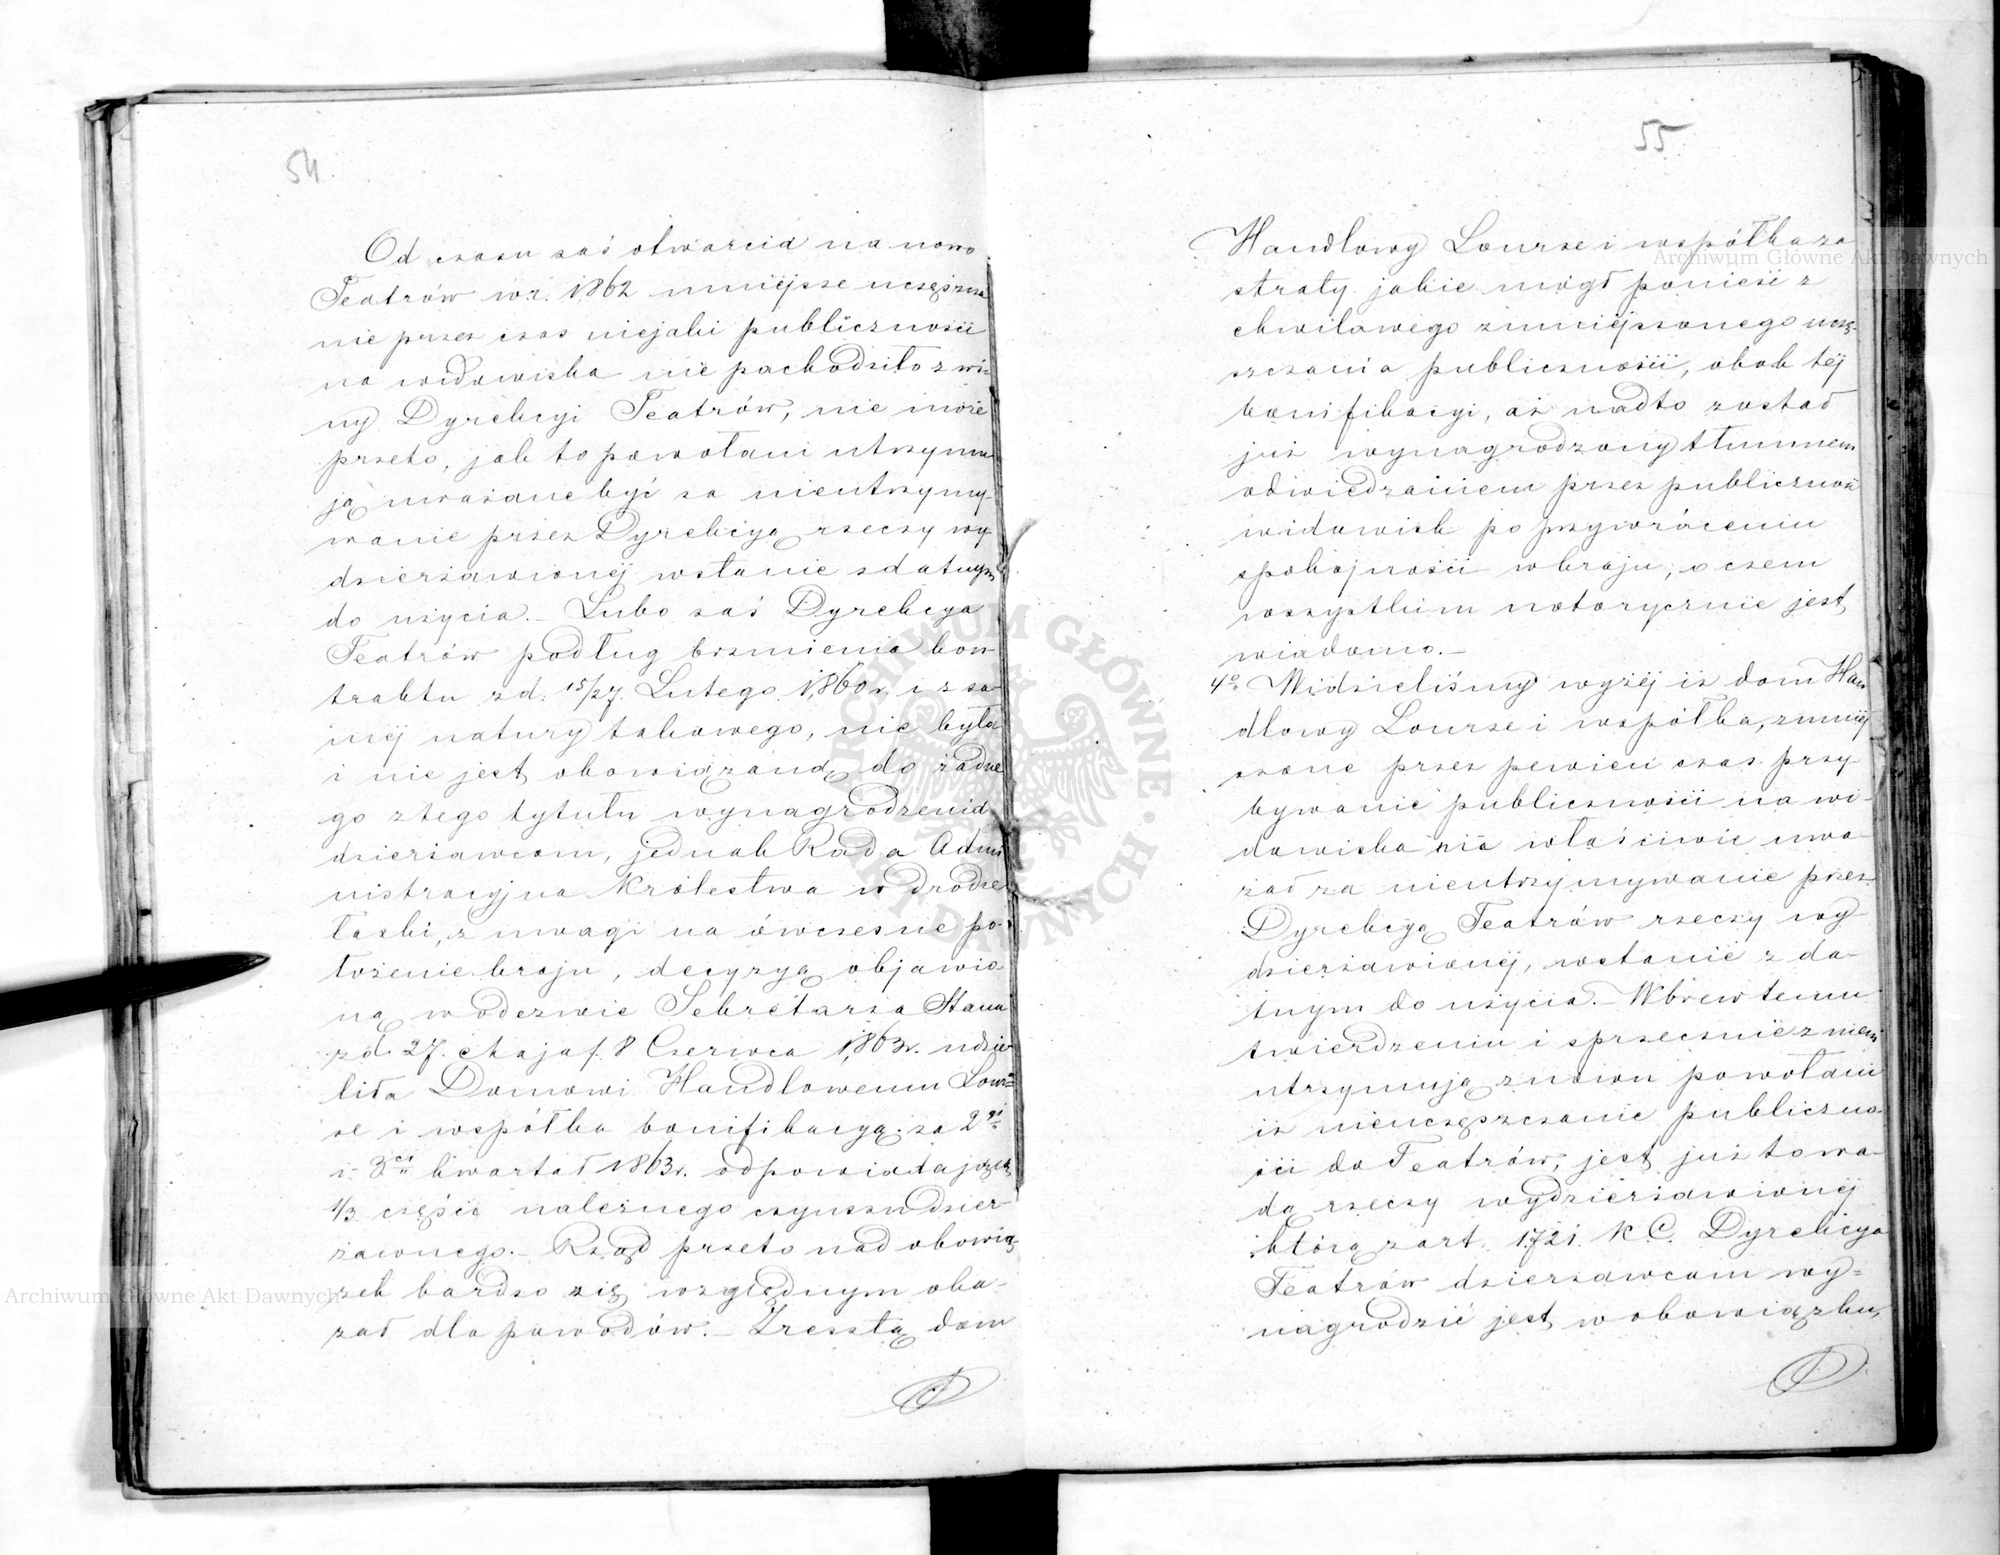 54.
Od czasu zaś otwarcia na nowo
Teatrów w r. 1862 mniejsze uczęszcza
nie przez czas niejaki publiczności
na widowiska nie pochodziło z wi-
ny Dyrekcyi Teatrów, nie może
przeto, jak to powołani utrzymu
ją uważane być za nieutrzymy-
wanie przez Dyrekcyą rzeczy wy-
dzierżawionéj w stanie zdatnym
do użycia. – Lubo zaś Dyrekcya
Teatrów podług brzmienia kon-
traktu z d. 15/27 Lutego 1860 r. i z sa-
méj natury takowego, nie była
i nie jest obowiązaną do żadne
go z tego tytułu wynagrodzenia
dzierżawcom, jednak Rada Admi
nistracyjna Królestwa w drodze
łaski, z uwagi na ówczesne po-
łożenie kraju, decyzyą objawio-
ną w odezwie Sekretarza Stanu
z d. 27. Maja / 8 Czerwca 1863 r. udzie
liła Domowi Handlowemu Lour=
se i współka bonifikacyą za 2gi
i 3ci kwartał 1863 r. odpowiadającą
1/3 części należnego czynszu dzier-
żawnego. – Rząd przeto nad obowią
zek bardzo się względnym oka-
zał dla powodów. – Zresztą dom
55
Handlowy Lourse i współka za
straty jakie mógł ponieść z
chwilowego zmniejszonego uczę-
szczania publiczności, obok téj
bonifikacyi, aż nadto został
już wynagrodzony tłumnem
odwiedzaniem przez publiczność
widowisk po przywróceniu
spokojności w kraju, o czem
wszystkim notorycznie jest
wiadomo. –
4o Widzieliśmy wyżéj iż dom Han
dlowy Lourse i współka, zmniej
szone przez pewien czas przy-
bywanie publiczności na wi-
dowiska nie właściwie uwa-
żał za nieutrzymywanie przez
Dyrekcyą Teatrów rzeczy wy-
dzierżawionéj, w stanie zda-
tnym do użycia. – Wbrew temu
twierdzeniu i sprzecznie z niem
utrzymują znowu powołani
iż nieuczęszczanie publiczno-
ści do Teatrów, jest już to wa-
dą rzeczy wydzierżawionéj
którą z art. 1721. K. C. Dyrekcya
Teatrów dzierżawcom wy=
nagrodzić jest w obowiązku,
ARCHIWUM GŁÓWNE AKT DAWNYCH
Archiwum Główne Akt Dawnych
Archiwum Główne Akt Dawnych